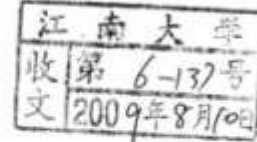 江南大学
收文 第 6-137号
2009年8月10日